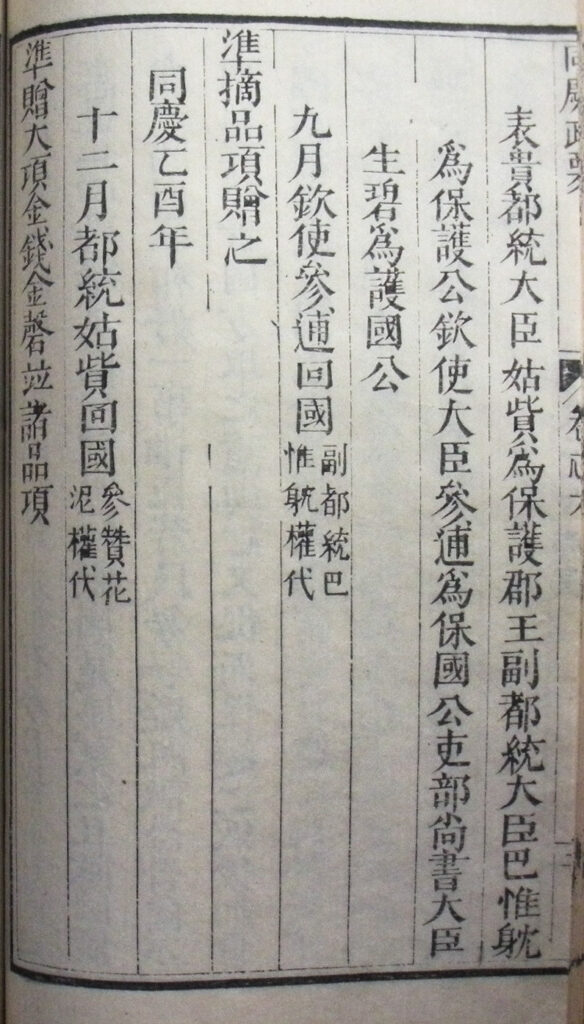 表貴都統大臣姑貲爲保護郡王副都統大臣巴惟躭
爲保護公欽使大臣參逋爲保國公吏部尚書大臣
生碧爲護國公
九月欽使參逋回國副都統巴
惟躭權代
準摘品項贈之
同慶乙酉年
十二月都統姑貲回國參贊花
泥權代
準贈大項金錢金磬竝諸品項